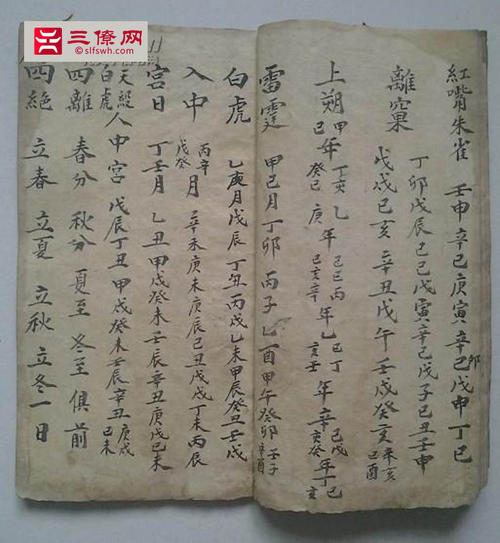 三僚网
www.slfswh.com
紅嘴朱雀 壬申 辛巳 庚寅 辛卯 戊申 丁巳
離窠 丁卯 戊辰 己巳 戊寅 辛巳 戊子 己丑 壬申
戊戌 己亥 辛丑 戊午 壬戌 癸亥 辛亥 己酉
上朔 甲
年
雷霆 甲己月 丁卯 丙子 乙酉 甲午 癸卯 壬子 辛酉
白虎 乙庚月 戊辰 丁丑 丙戌 乙未 甲辰 癸丑 壬戌
入中 丙辛 戊癸 月 辛未 庚辰 己丑 戊戌 丁未 丙辰
宮日 丁壬月 乙丑 甲戌 癸未 壬辰 辛丑 庚戌 己未
天殺 白虎 入中宮 戊辰 丁丑 甲戌 癸未 壬辰 辛丑 庚戌 己未
四離 春分 秋分 夏至 冬至 俱前
四絕 立春 立夏 立秋 立冬 一日